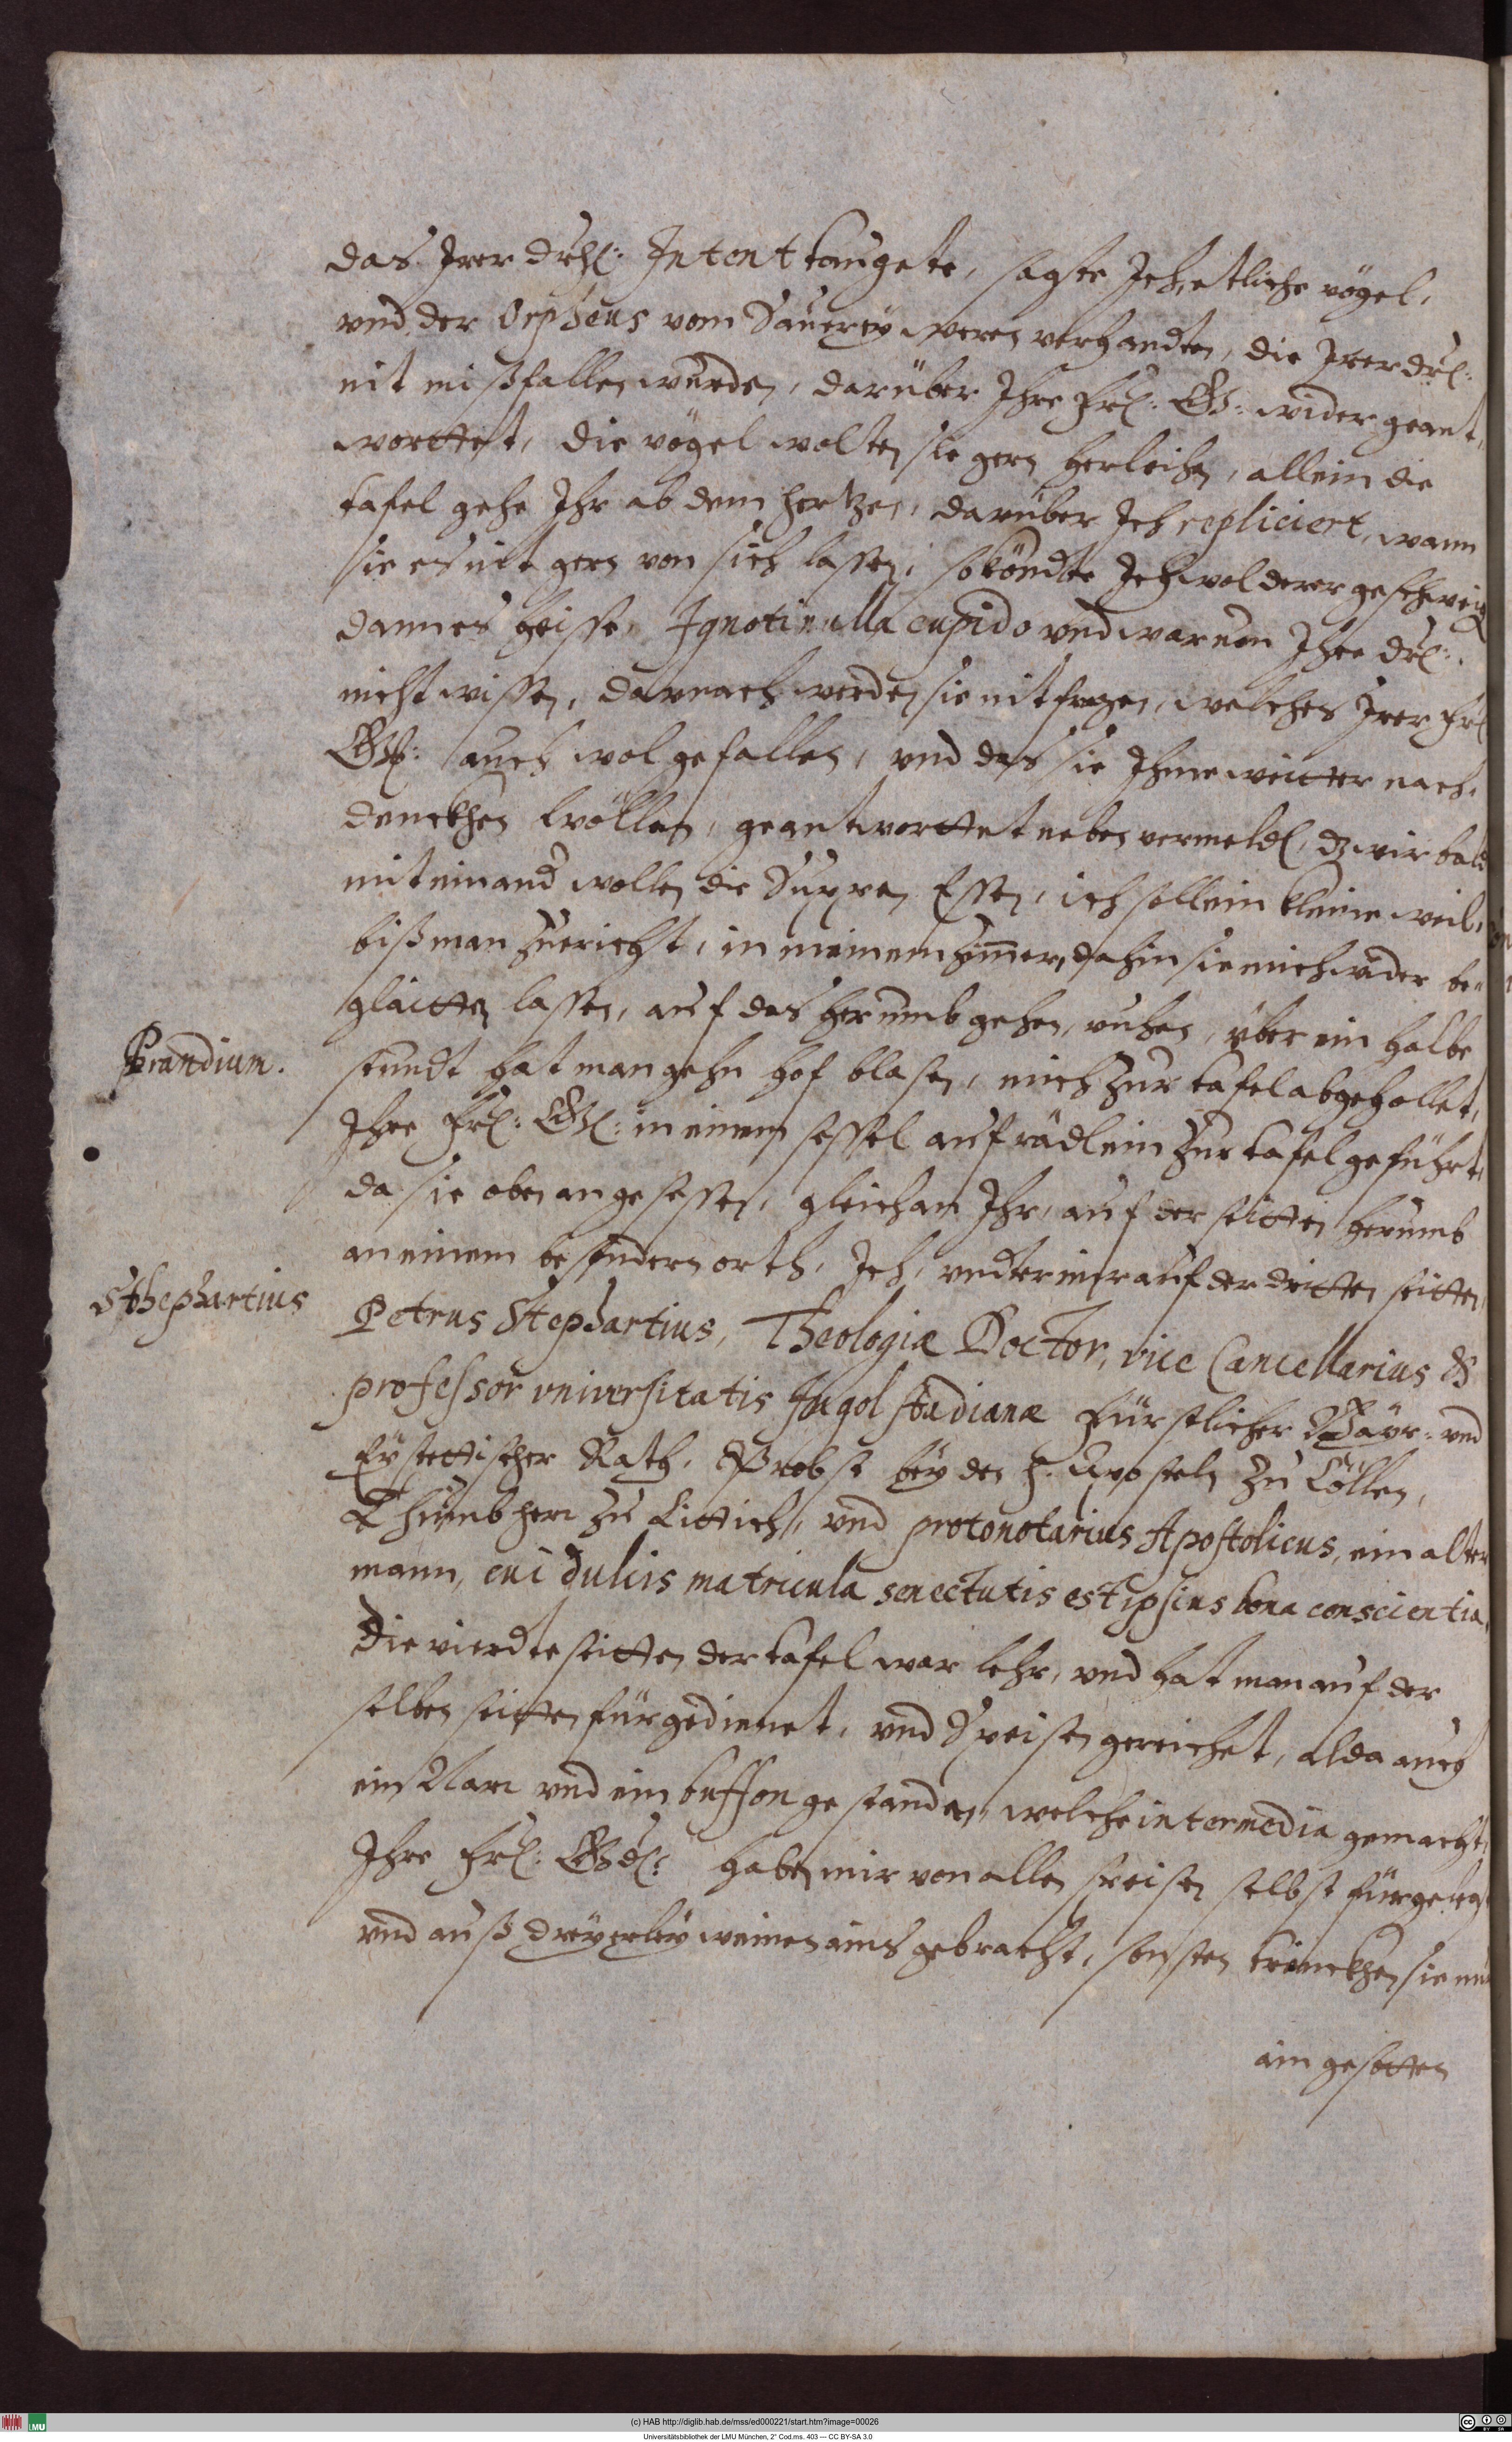 das Jrer drhl: Jntent taugete, sagte Jch, etliche vögel,
vnd der Orpheus vom Sauerey weren verhandten, die Jrer drl:
nit mißfallen wurden, darüber Jhre Frl: Gn: wider geant,
worttet, die vögel wolten sie gern herleihen, allein die
tafel gehe Jhr ab dem hertzen, darüber Jch repliciert, wann
sie es nit gern von sich lassen, so köndte Jch wol derer geschweig
dann es heisse, Ignoti nulla cupido vnd warumb Jhre drl:
nicht wissen, darnach werden sie nit fragen, welches Jrer Frl
Gn: auch wol gefallen, vnd das sie Jhme weitter nach,
denckhen wöllen, geantworttet neben vermeld, dz wir bald
miteinand wollen die Suppen Essen, ich soll ein kleine weil,
biß man zuericht, in meinem zimmer, dahin sie mich wider be=
glaitten lassen, auf das herumb gehen, ruhen, über ein halbe
Prandium.
stundt hat man gehn hof blasen, mich zur tafel abgehollet,
Jhre Frl: Gn: in einem sessel auf rädlein zur tafel geführt,
da sie oben angesessen, gleich an Jhr, auf der seitten herumb
an einem besondern orth, Jch, vndter mir auf der dritten seitten,
Sthephartius
Petrus Stephartius, Theologiæ Doctor, vice Cancellarius &
professor vniversitatis Ingolstadianæ Fürstlicher Bayr: vnd
Eystettischer Rath, Probst bey den h. Aposteln zu Cöllen,
Thumbherr zu Littich, vnd protonotarius Apostolicus, ein alter
mann, cui dulcis matricula senectutis est ipsius bona conscientia,
Die vierdte seitten der tafel war lehr, vnd hat man auf der
selben seitten fürgedienet, vnd Speisen gereichet, alda auch
ein Narr vnd ein buffon gestanden, welche intermedia gemacht,
Jhre Frl: Gnd: haben mir von allen speisen selbst fürgelegt
vnd auß dreyerley weinen ains gebracht, sonsten trinckhen sie nur
ain gesotten
(c) HAB http://diglib.hab.de/mss/ed000221/start.htm?image=00026
Universitätsbibliothek der LMU München, 2° Cod.ms. 403 — CC BY-SA 3.0